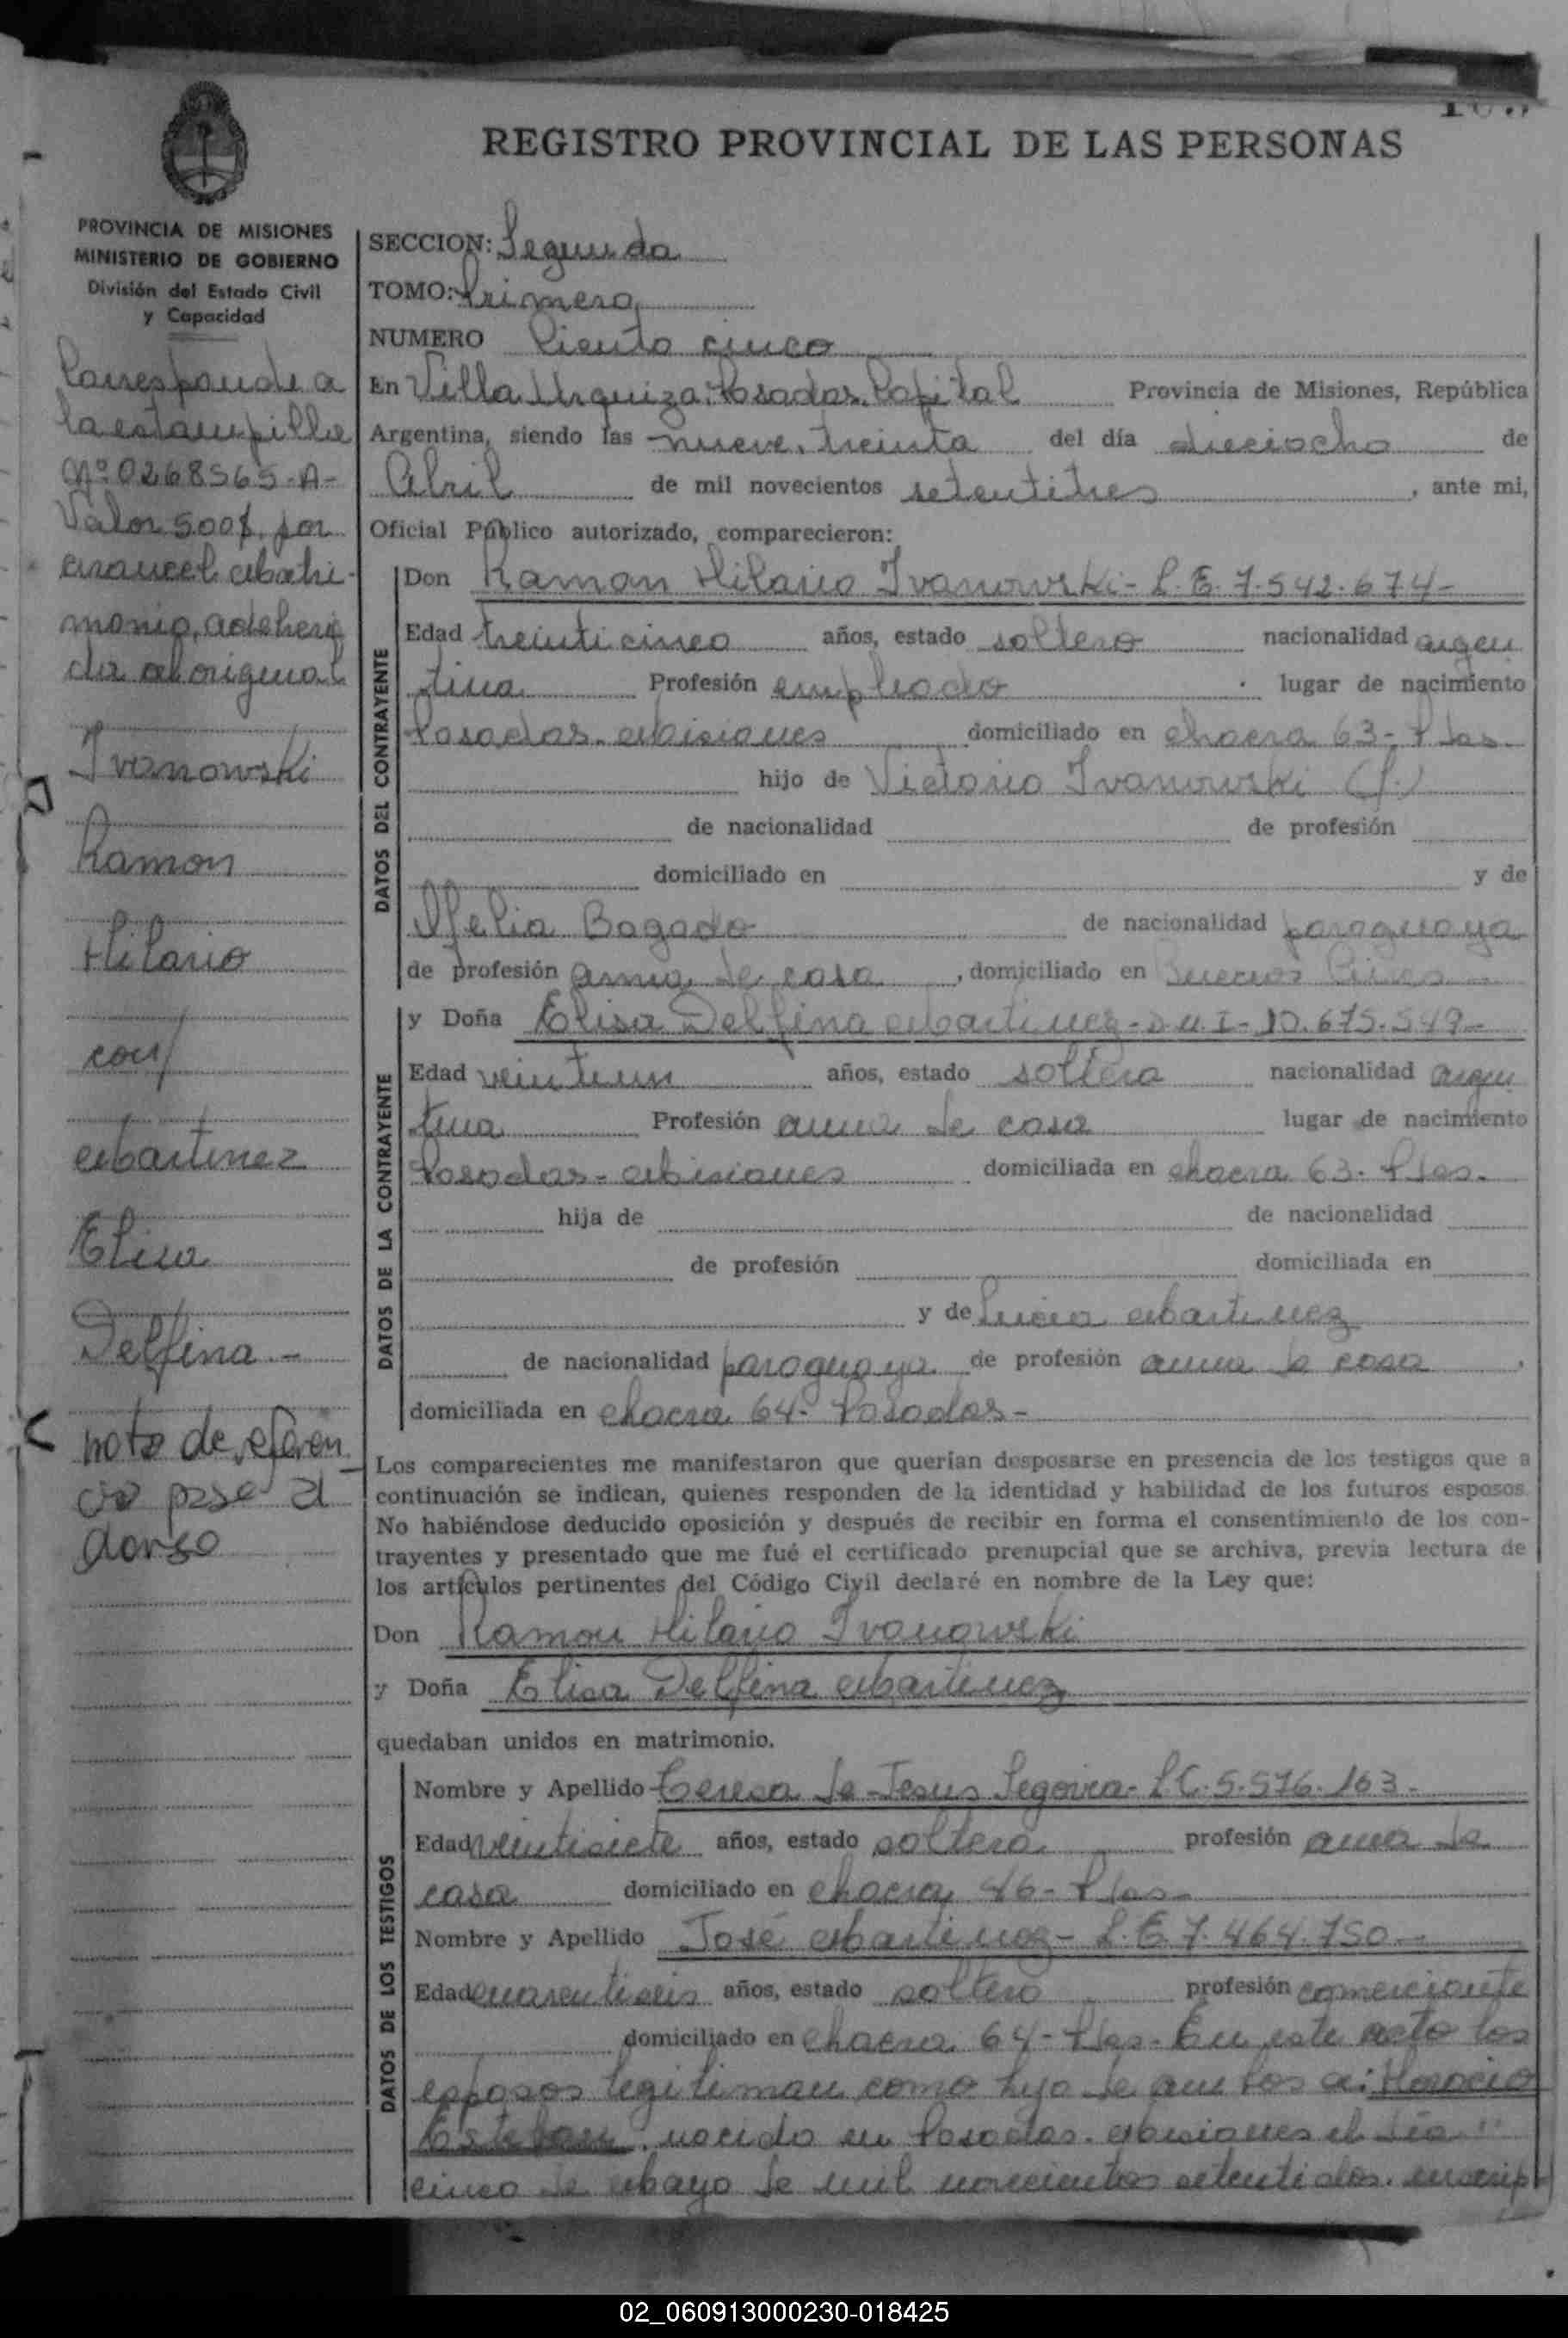 REGISTRO PROVINCIAL DE LAS PERSONAS
PROVINCIA DE MISIONES
MINISTERIO DE GOBIERNO
División del Estado Civil
y Capacidad
Corresponde a
la estampilla
Nº 0268565-A-
Valor 500$ por
arancel Matri-
monio, adheri
da al original
Ivanowski
Ramon
Hilario
con/
Martinez
Elisa
Delfina.-
nota de referen
cia pase al
dorso
SECCION: Segunda
TOMO: Primero
NUMERO Ciento cinco
En Villa Urquiza. Posadas. Capital Provincia de Misiones, República
Argentina, siendo las nueve, treinta del día dieciocho de
Abril de mil novecientos setentitres, ante mi,
Oficial Público autorizado, comparecieron:
DATOS DEL CONTRAYENTE
Don Ramon Hilario Ivanowski - L.E. 7.542.674-
Edad treinticinco años, estado soltero nacionalidad argen
tina Profesión empleado lugar de nacimiento
Posadas. Misiones domiciliado en chacra 63- Pdas.
hijo de Victorio Ivanowski (f.)
de nacionalidad de profesión
domiciliado en y de
Ofelia Bogado de nacionalidad paraguaya
de profesión ama de casa, domiciliado en Buenos Aires
DATOS DE LA CONTRAYENTE
y Doña Elisa Delfina Martinez - D.N.I - 10.675.549-
Edad veintiun años, estado soltera nacionalidad argen
tina Profesión ama de casa lugar de nacimiento
Posadas - Misiones domiciliada en chacra 63. Pdas.
hija de de nacionalidad
de profesión domiciliada en
y de Lucia Martinez
de nacionalidad paraguaya de profesión ama de casa,
domiciliada en chacra 64- Posadas-
Los comparecientes me manifestaron que querían desposarse en presencia de los testigos que a
continuación se indican, quienes responden de la identidad y habilidad de los futuros esposos.
No habiéndose deducido oposición y después de recibir en forma el consentimiento de los con-
trayentes y presentado que me fué el certificado prenupcial que se archiva, previa lectura de
los artículos pertinentes del Código Civil declaré en nombre de la Ley que:
Don Ramon Hilario Ivanowski
y Doña Elisa Delfina Martinez
quedaban unidos en matrimonio.
DATOS DE LOS TESTIGOS
Nombre y Apellido Teresa de Jesus Segovia - L.C. 5.576.163-
Edad veintisiete años, estado soltera profesión ama de
casa domiciliado en chacra 46- Pdas-
Nombre y Apellido José Martinez - L.E. 7.464.750-
Edad cuarentiseis años, estado soltero profesión comerciante
domiciliado en chacra 64- Pdas- En este acto los
esposos legitiman como hijo de ambos a: Horacio
Esteban, nacido en Posadas. Misiones el día
cinco de Mayo de mil novecientos setentidos. inscrip
02_060913000230-018425